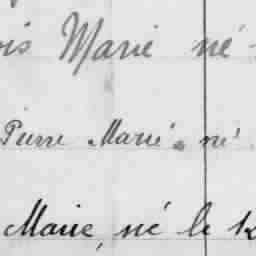 Marie né
Pierre Marie né
Marie, né le